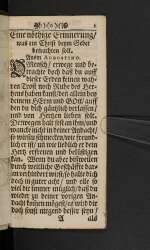 Eine nöthige Erinnerung/
was ein Christ beym Gebet
betrachten soll.
Mensch/ erwege und be-
trachte doch daß du auff
dieser Erden keinen wah-
ren Trost noch Ruhe des Her-
tzens haben kanst/ den allein bey
deinem HErrn und GOtt/ auff
den du dich gäntzlich verlassen/
und von Hertzen lieben solt.
Derwegen halt fest an ihm/ und
wancke nicht in deiner Andacht/
so wirstu schmecken/ wie freund-
lich er ist/ und wie lieblich er dein
Hertz erfreuen und beseligen
kan. Wenn du aber bißweilen
durch weltliche Geschäffte dar-
an verhindert wirst/ so halte dich
doch in guter acht/ und eile so
viel dir immer müglich/ daß du
wieder zu deiner vorigen An-
dacht kommen mögest/ es wird dir
doch sonst nirgend besser seyn/
A
als